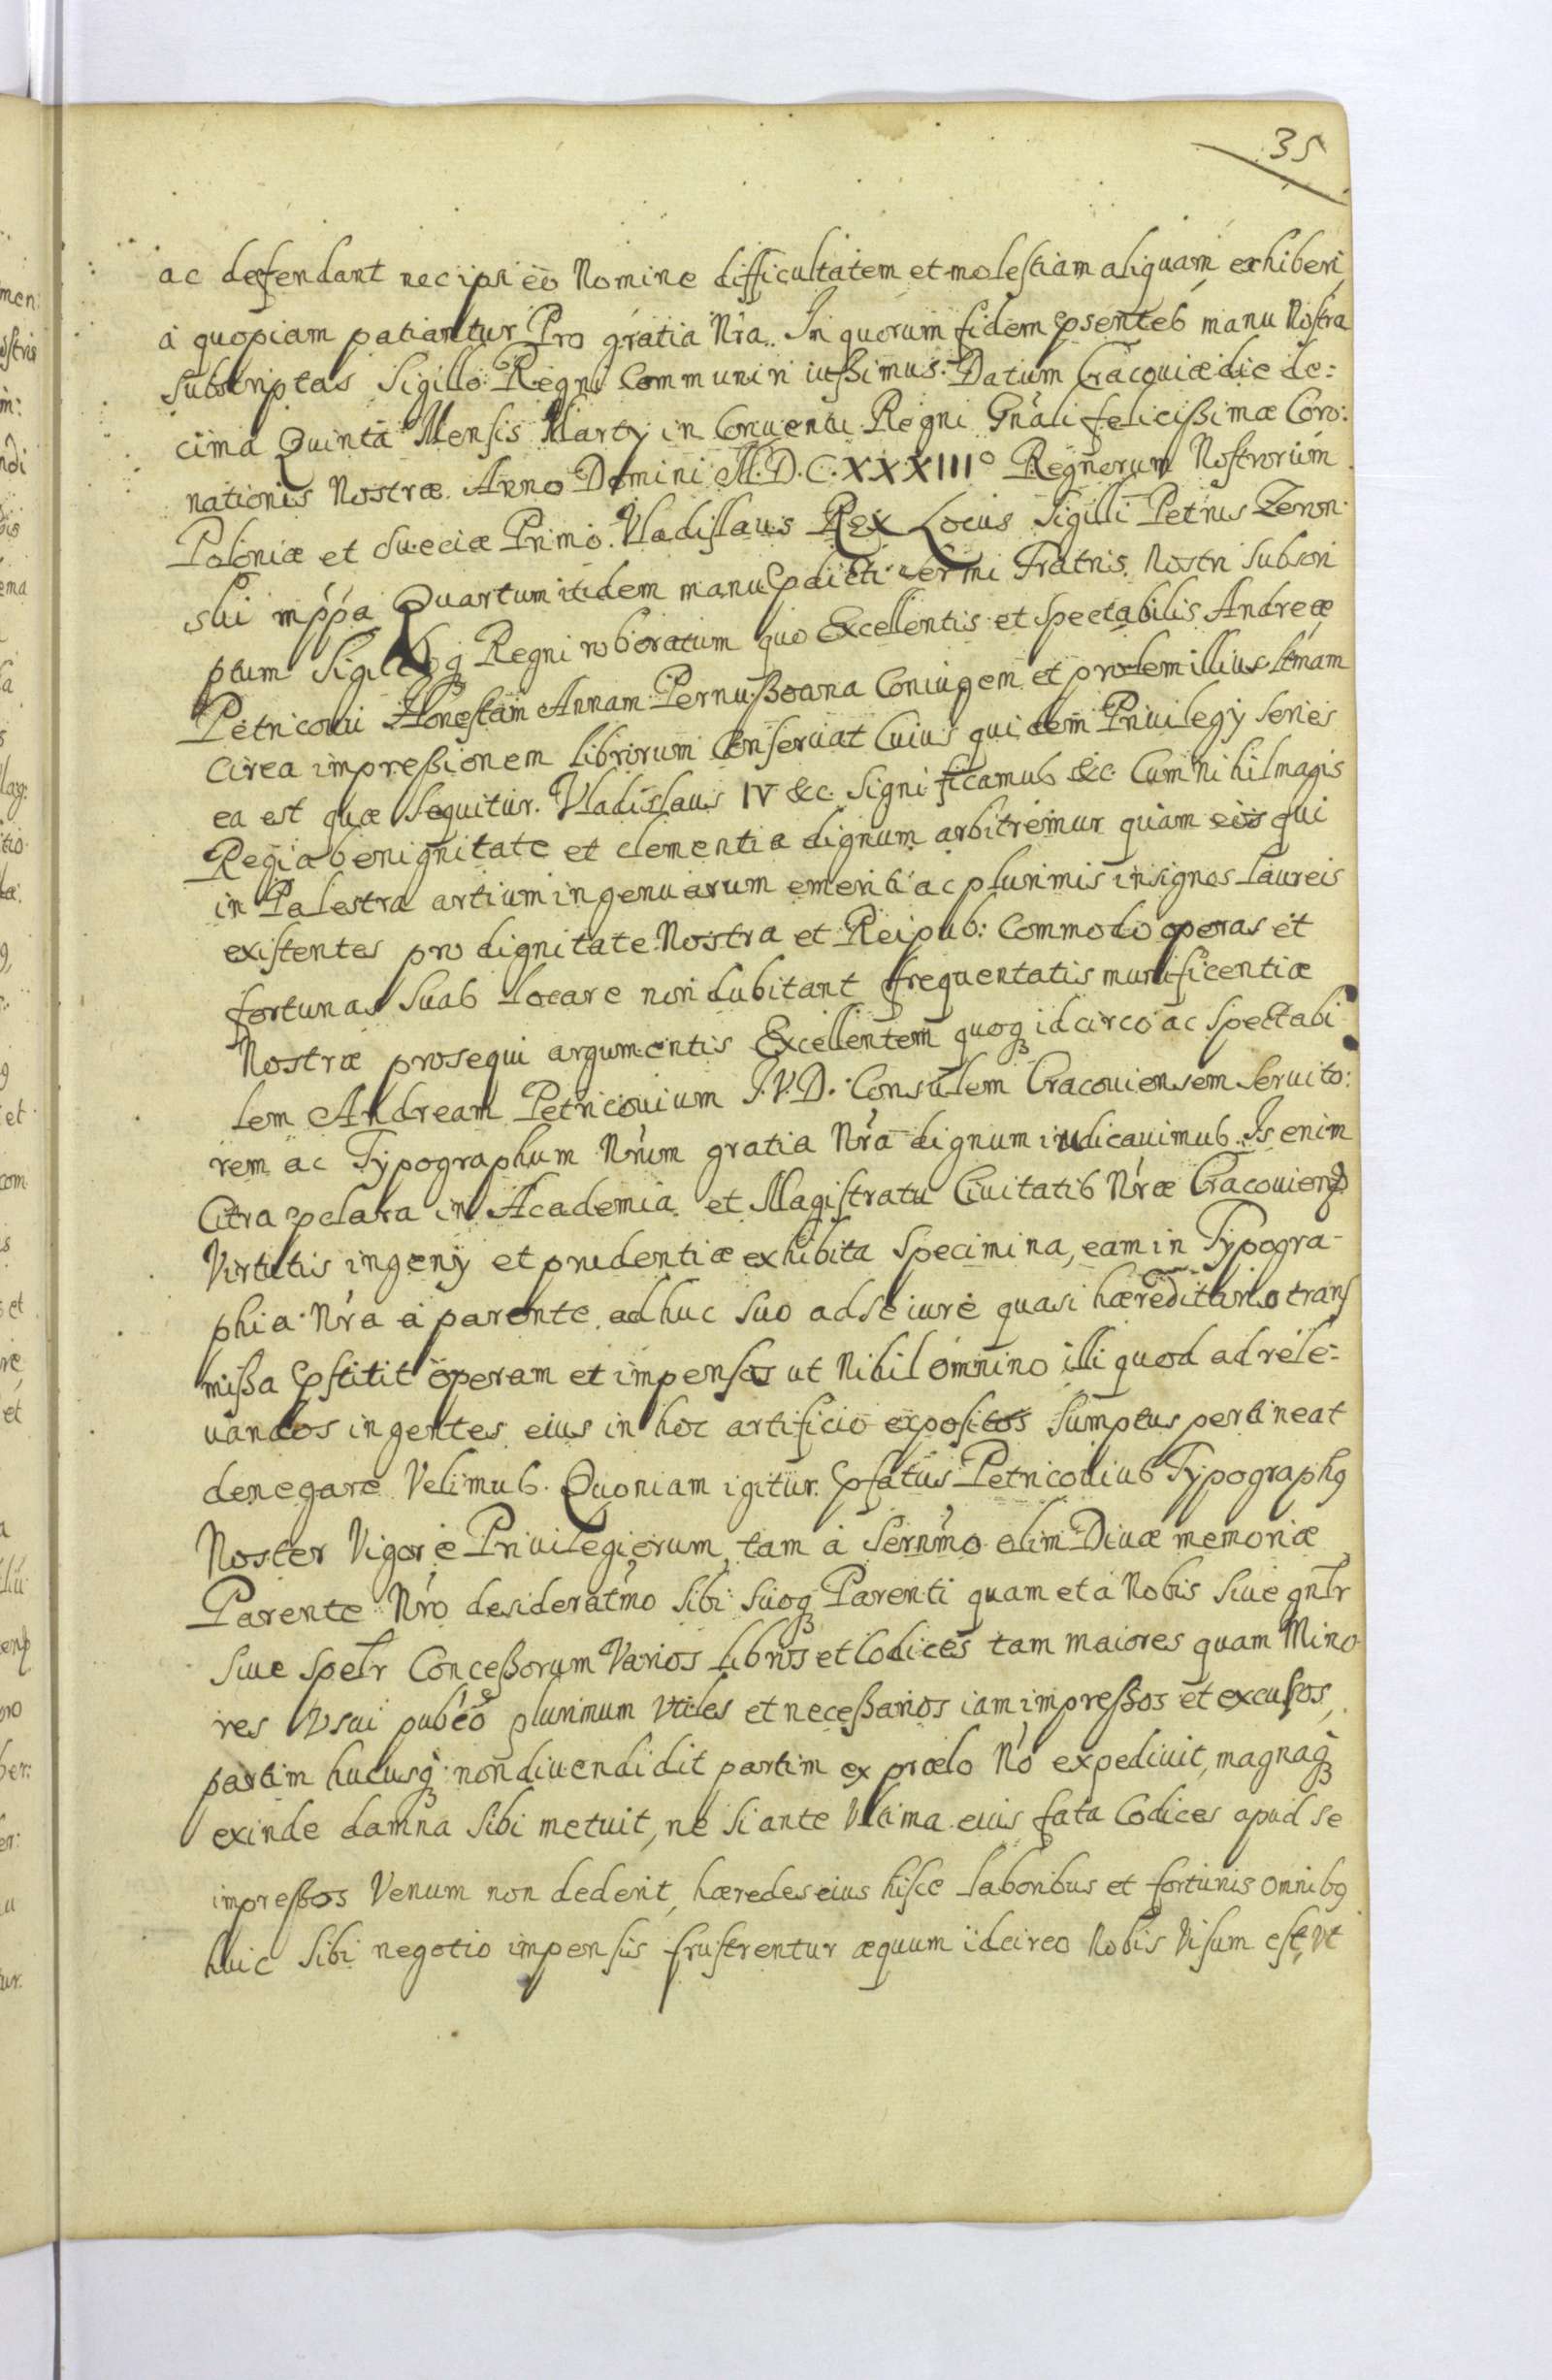 35
ac defendant nec ipsi eo Nomine difficultatem et molestiam aliquam exhiberi
a quopiam patiantur Pro gratia Nra. In quorum fidem psentes manu Nostra
Subscriptas Sigillo Regni Communiri iussimus. Datum Cracoviæ die de:
cima Quinta Mensis Marty in Conventu Regni Gnali felicissimæ Coro:
nationis Nostræ. Anno Domini M.D.C.XXXIIIº Regnorum Nostrorum
Poloniæ et Sueciæ Primo. Vladislaus Rex Locus Sigilli Petrus Zeron:
ski mppa Quartum itidem manu pdicti Sermi Fratris Nostri Subscri
ptum Sigilloq Regni roboratum quo Excellentis et Spectabilis Andreæ
Petricovii Honestam Annam Pernussowna Coniugem et prolem illius ltmam
circa impressionem librorum Conservat Cuius quidem Privilegy Series
ea est quæ Sequitur. Vladislaus IV &c. Significamus &c. Cum Nihil magis
Regia benignitate et clementia dignum arbitremur quam eos qui
in Palestra artium ingenuarum emeriti ac plurimis insignes laureis
existentes pro dignitate Nostra et Reipub: Commodo operas et
fortunas Suas locare non dubitant frequentatis munificentiæ
Nostræ prosequi argumentis Excellentem quoq idcirco ac Spectabi
lem Andream Petricovium J.V.D. Consulem Cracoviensem Servito:
rem ac Typographum Nrum gratia Nra dignum iudicavimus. Is enim
Citra pclara in Academia et Magistratu Civitatis Nræ Cracoviens
Virtutis ingeny et prudentiæ exhibita Specimina, eam in Typogra-
phia Nra a parente adhuc Suo ad Se iure quasi hæreditario trans
missa pstitit operam et impensas ut Nihil omnino illi quod ad rele:
vandos ingentes eius in hoc artificio expositos Sumptus pertineat
denegare Velimus. Quoniam igitur pfatus Petricovius Typographq
Noster Vigore Privilegiorum tam a Sernmo olim Divæ memoriæ
Parente Nro desideratmo Sibi Suoq Parenti quam et a Nobis Sive gnlr
Sive Spelr Concessorum Varios libros et Codices tam maiores quam Mino
res Vsui pubeo plurimum Vtiles et necessarios iam impressos et excusos,
partim hucusq non divendidit partim ex prælo No expedivit, magnaq
exinde damna Sibi metuit, ne Si ante Vltima eius fata Codices apud Se
impressos Venum non dederit, hæredes eius hisce laboribus et fortunis omnibq
huic Sibi negotio impensis frustrentur æquum idcirco Nobis Visum est, Vt